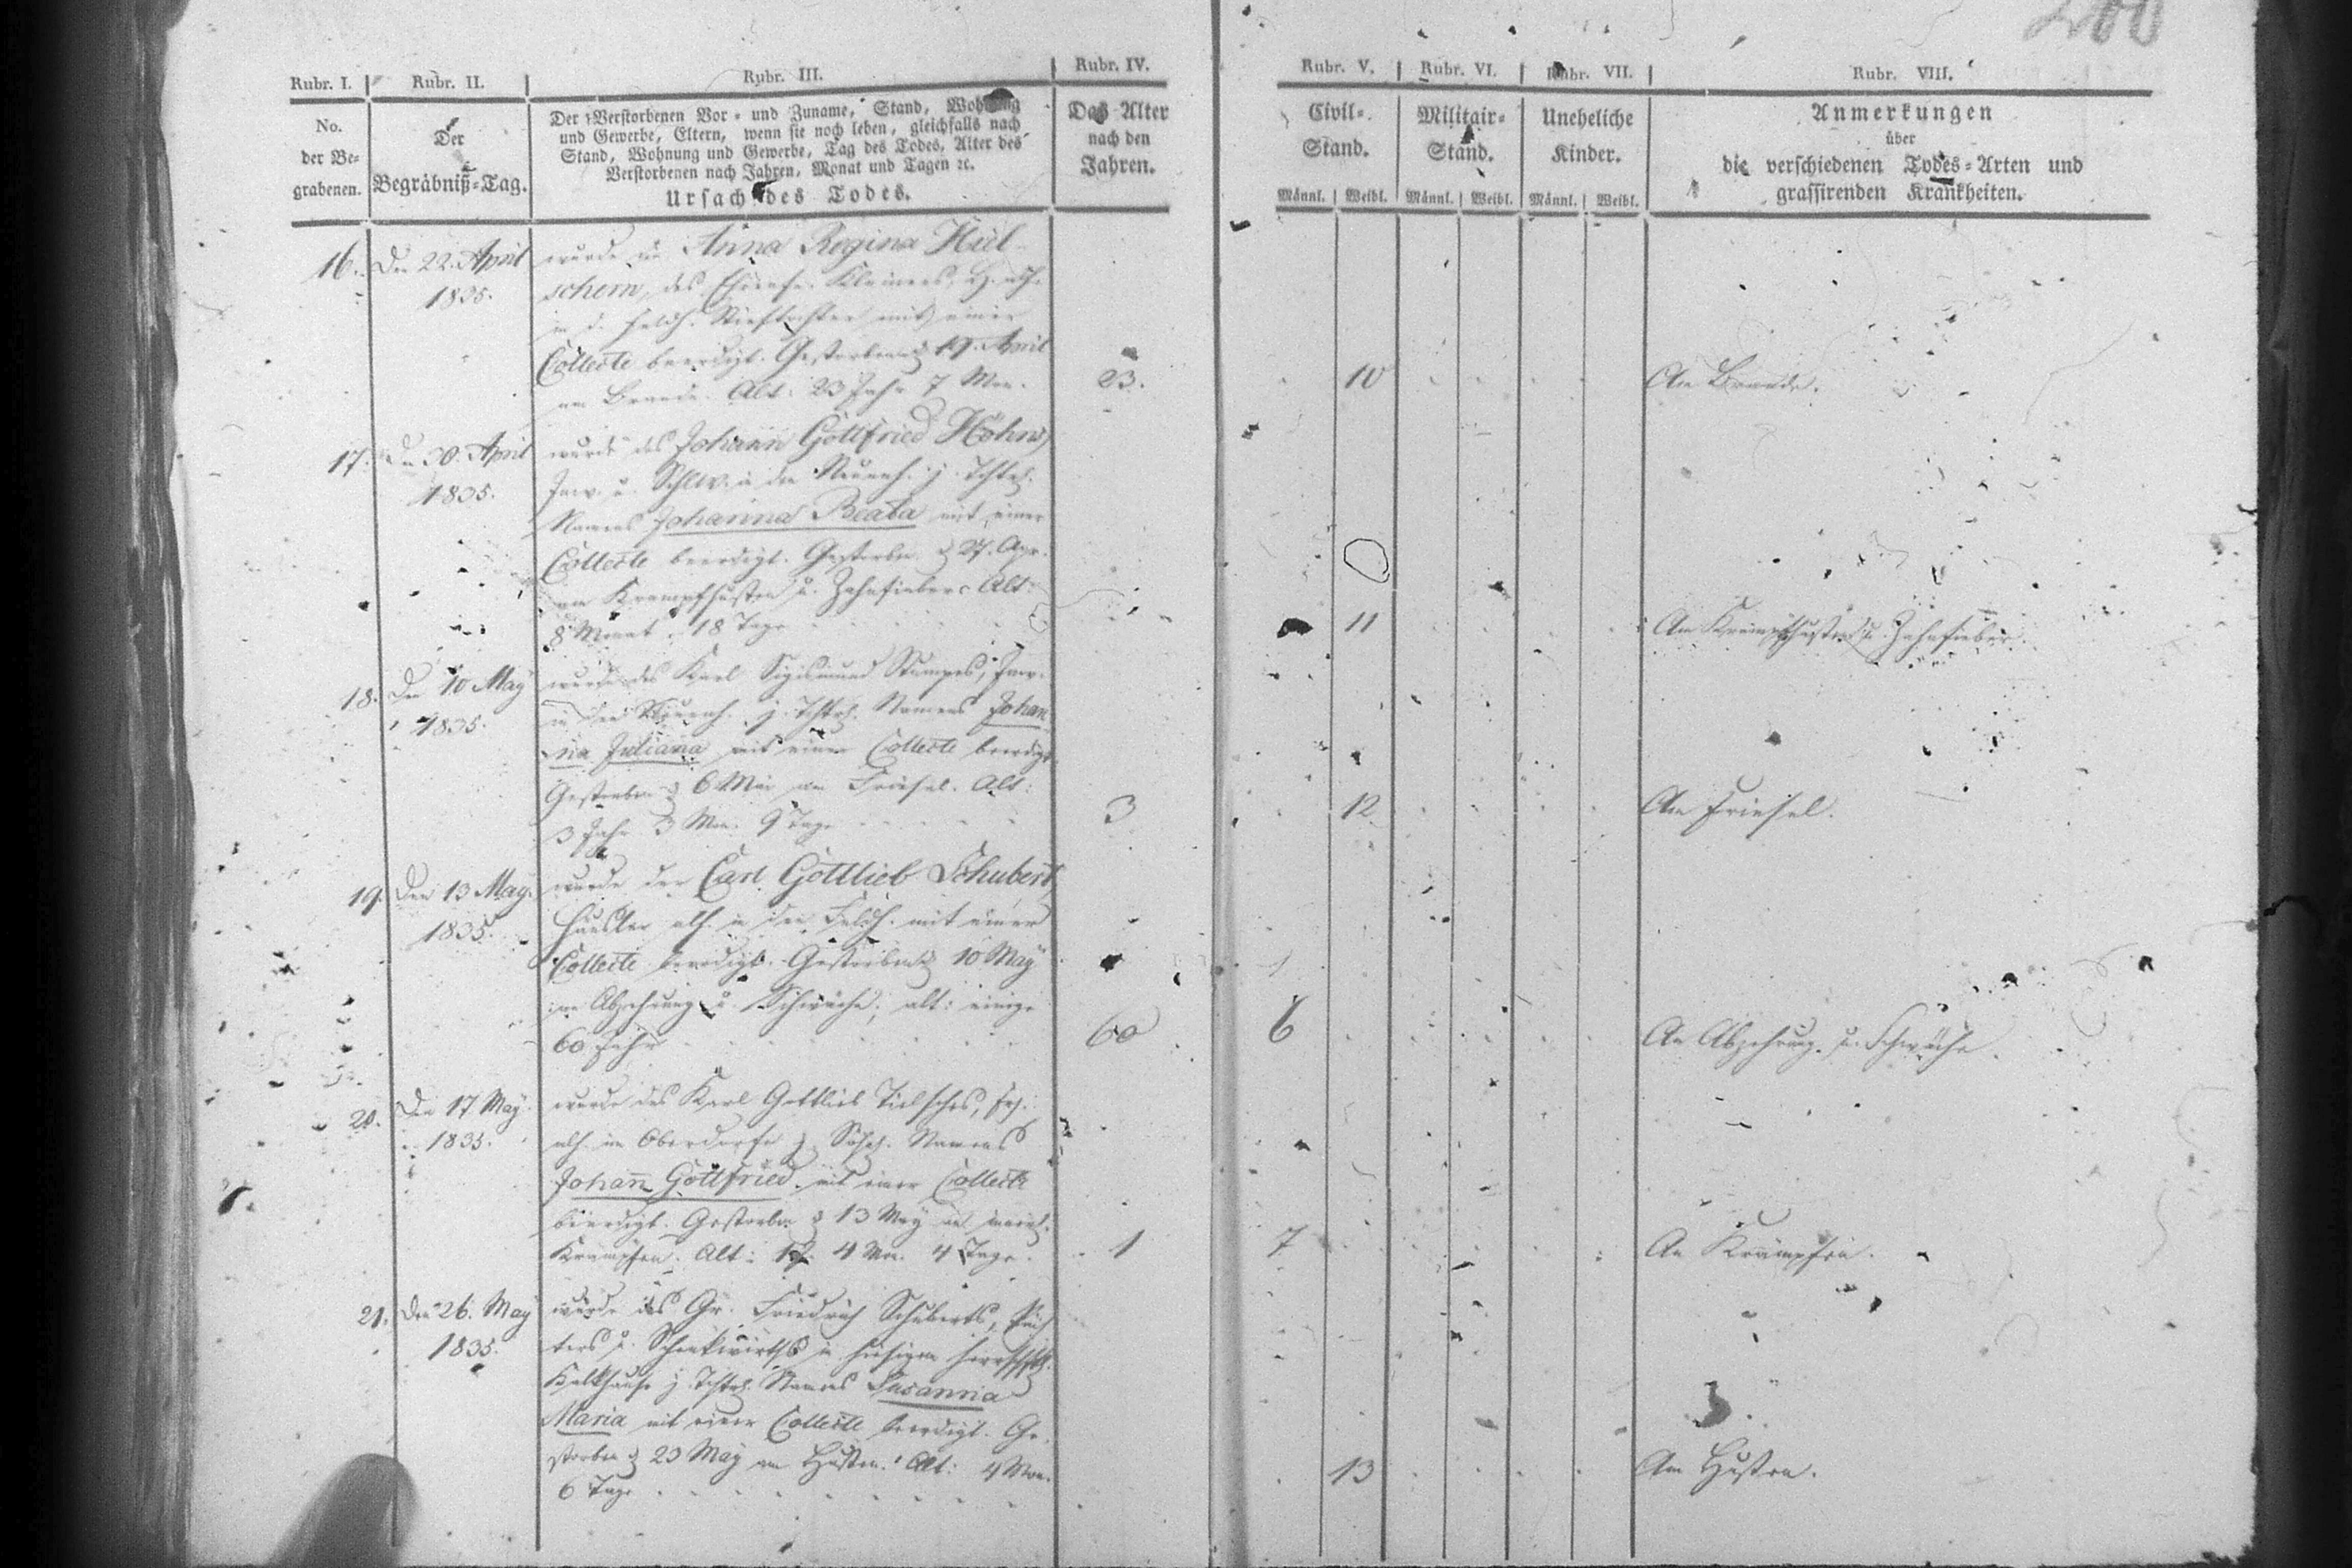 200
Rubr. I. Rubr. II. Rubr. III. Rubr. IV. Rubr. V. Rubr. VI. Rubr. VII. Rubr. VIII.
No. der Be= grabenen.
Der Begräbniß=Tag.
Der Verstorbenen Vor = und Zuname, Stand, Wohnung
und Gewerbe, Eltern, wenn sie noch leben, gleichfalls nach
Stand, Wohnung und Gewerbe, Tag des Todes, Alter des
Verstorbenen nach Jahren, Monat und Tagen ꝛc.
Ursach des Todes.
Das Alter
nach den
Jahren.
Civil=
Stand.
Männl. Weibl.
Militair=
Stand.
Männl. Weibl.
Uneheliche
Kinder.
Männl. Weibl.
Anmerkungen
über
die verschiedenen Todes=Arten und
grassirenden Krankheiten.
16. Den 22. April
1835.
wurde Anna Regina Hiel-
schern, des
Stieftochter mit einer
Collecte beerdigt. Gestorben 19. April
am Brande. Alt: 23 Jahr 7 Mon. 23. 10 Am Brande.
17. Den 30. April
1835.
wurde des Johann Gottfried Höhns,
Inw. u. in der
Namens Johanna Beata mit einer
Collecte beerdigt. Gestorben 27. Apr.
am Krampfhusten u. Zahnfieber Alt:
8 Monat 18 Tage 11 Am Krampfhusten u. Zahnfieber.
18. Den 10 May
1835.
wurde des Karl Sigismund Stumpes, Inw.
in der Namens Johan-
na Juliana mit einer Collecte beerdigt
Gestorben 6 Mai am Friesel. Alt:
3 Jahr 3 Mon. 9 Tage 3 12 Am Friesel.
19. Den 13 May.
1835.
wurde der Carl Gottlieb Schubert,
Häusler alh. in der Feldh. mit einer
Collecte beerdigt. Gestorben 10 May
an Abzehrung u. Schwäche; alt: einige
60 Jahr 60 6 An Abzehrung u. Schwäche.
20. Den 17 May.
1835.
wurde des Karl Gottlieb Tielsches,
alh. im Oberdorfe Namens
Johann Gottfried mit einer Collecte
beerdigt. Gestorben 13 May an
Krämpfen. Alt: 1 J. 4 Mon. 4 Tage. 1 7 An Krämpfen.
21. Den 26. May
1835.
wurde des Gr. Friedrich Schuberts, Päch-
ters u. Schenkwirths in hiesigem
Namens Susanna
Maria mit einer Collecte beerdigt. Ge-
storben 23 May am Husten. Alt: 4 Mon.
6 Tage 13 Am Husten.